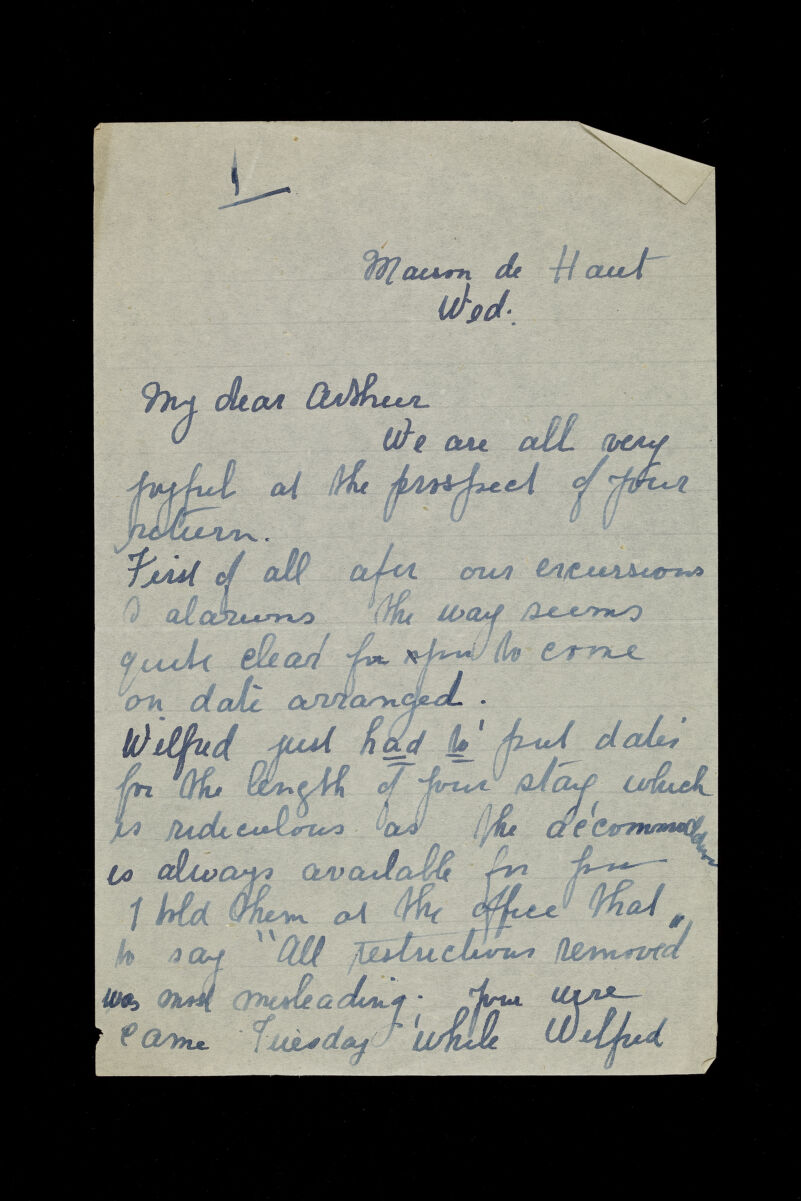 1
Maison de Haut
Wed.
My dear Arthur
We are all very
joyful at the prospect of your
return.
First of all after our excursions
& alarums the way seems
quite clear for you to come
on date arranged.
Wilfred just had to put dates
for the length of your stay which
is ridiculous as the accommodation
is always available for you
I told them at the office that
to say "All restrictions removed"
was most misleading. Your wire
came Tuesday while Wilfred